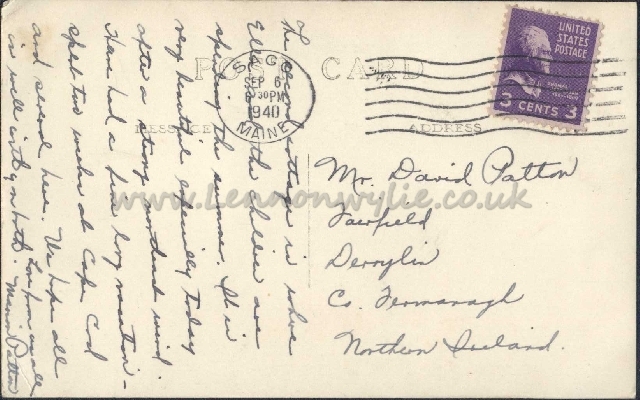 POST CARD
MESSAGE
ADDRESS
SACO
SEP 6
6 30 PM
1940
MAINE
UNITED
STATES
POSTAGE
3 CENTS 3
Mr. David Patton
Fairfield
Derrylin
Co. Fermanagh
Northern Ireland.
The second cottage is where
and the children are
spending the summer. It is
very beautiful especially today
after a strong northeast wind.
Have had a fine long vacation -
spent two weeks at Cape Cod
and several here. We hope all
is well with you both.
Love from us all
Minnie Patton
www.Lennonwylie.co.uk